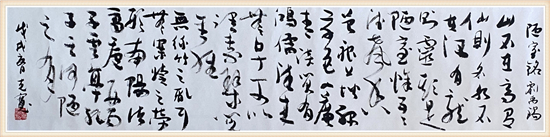 陋室铭 刘禹锡
山不在高有
仙则名水不
在深有龙
则灵斯是
陋室惟吾
德馨苔痕
上阶绿草
色入帘青
谈笑有
鸿儒往来
无白丁可以
调素琴阅
金经
无丝竹之乱耳
无案牍之劳
形南阳诸
葛庐西蜀
子云亭孔
子云何陋
之有
戊戌